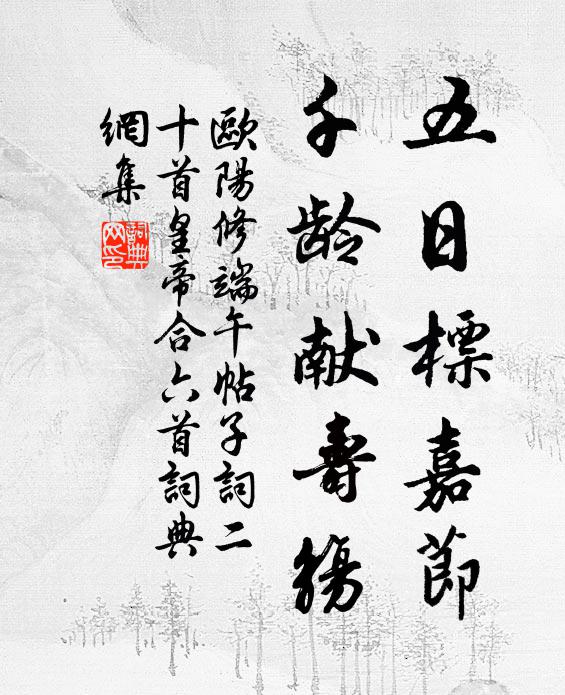 五日標嘉節
千龄献壽觴
歐陽修端午帖子詞二
十首皇帝合六首詞典
網集
詞典網印